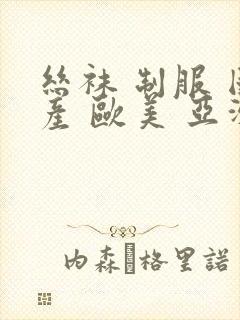 絲袜 制服
產 歐美 亞
內森 格里諾